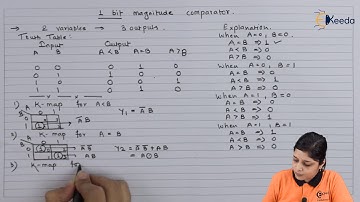 1 bit magnitude comparator.
Ekeeda
→ 2 variables → 3 outputs.
Truth Table:
Input Output
A B A < B A = B A > B
0 0 0 1 0
0 1 1 0 0
1 0 0 0 1
1 1 0 1 0
1) K-map for A<B
Y1 = A̅ B
A̅ B
2) K-map for A = B
A̅ B̅ Y2 = A̅ B̅ + AB
AB = A⊙B
3) K-map for
Explanation.
When A=0, B=0.
A=B ⇒ 1 ✓
A<B ⇒ 0
A>B ⇒ 0
When A=0, B=1
A=B ⇒ 0
A<B ⇒ 1
A>B ⇒ 0
When A=1, B=0
A=B ⇒ 0
A<B ⇒ 0
A>B ⇒ 1
When A=1, B=1
A=B ⇒ 1
A<B ⇒ 0
A>B ⇒ 0